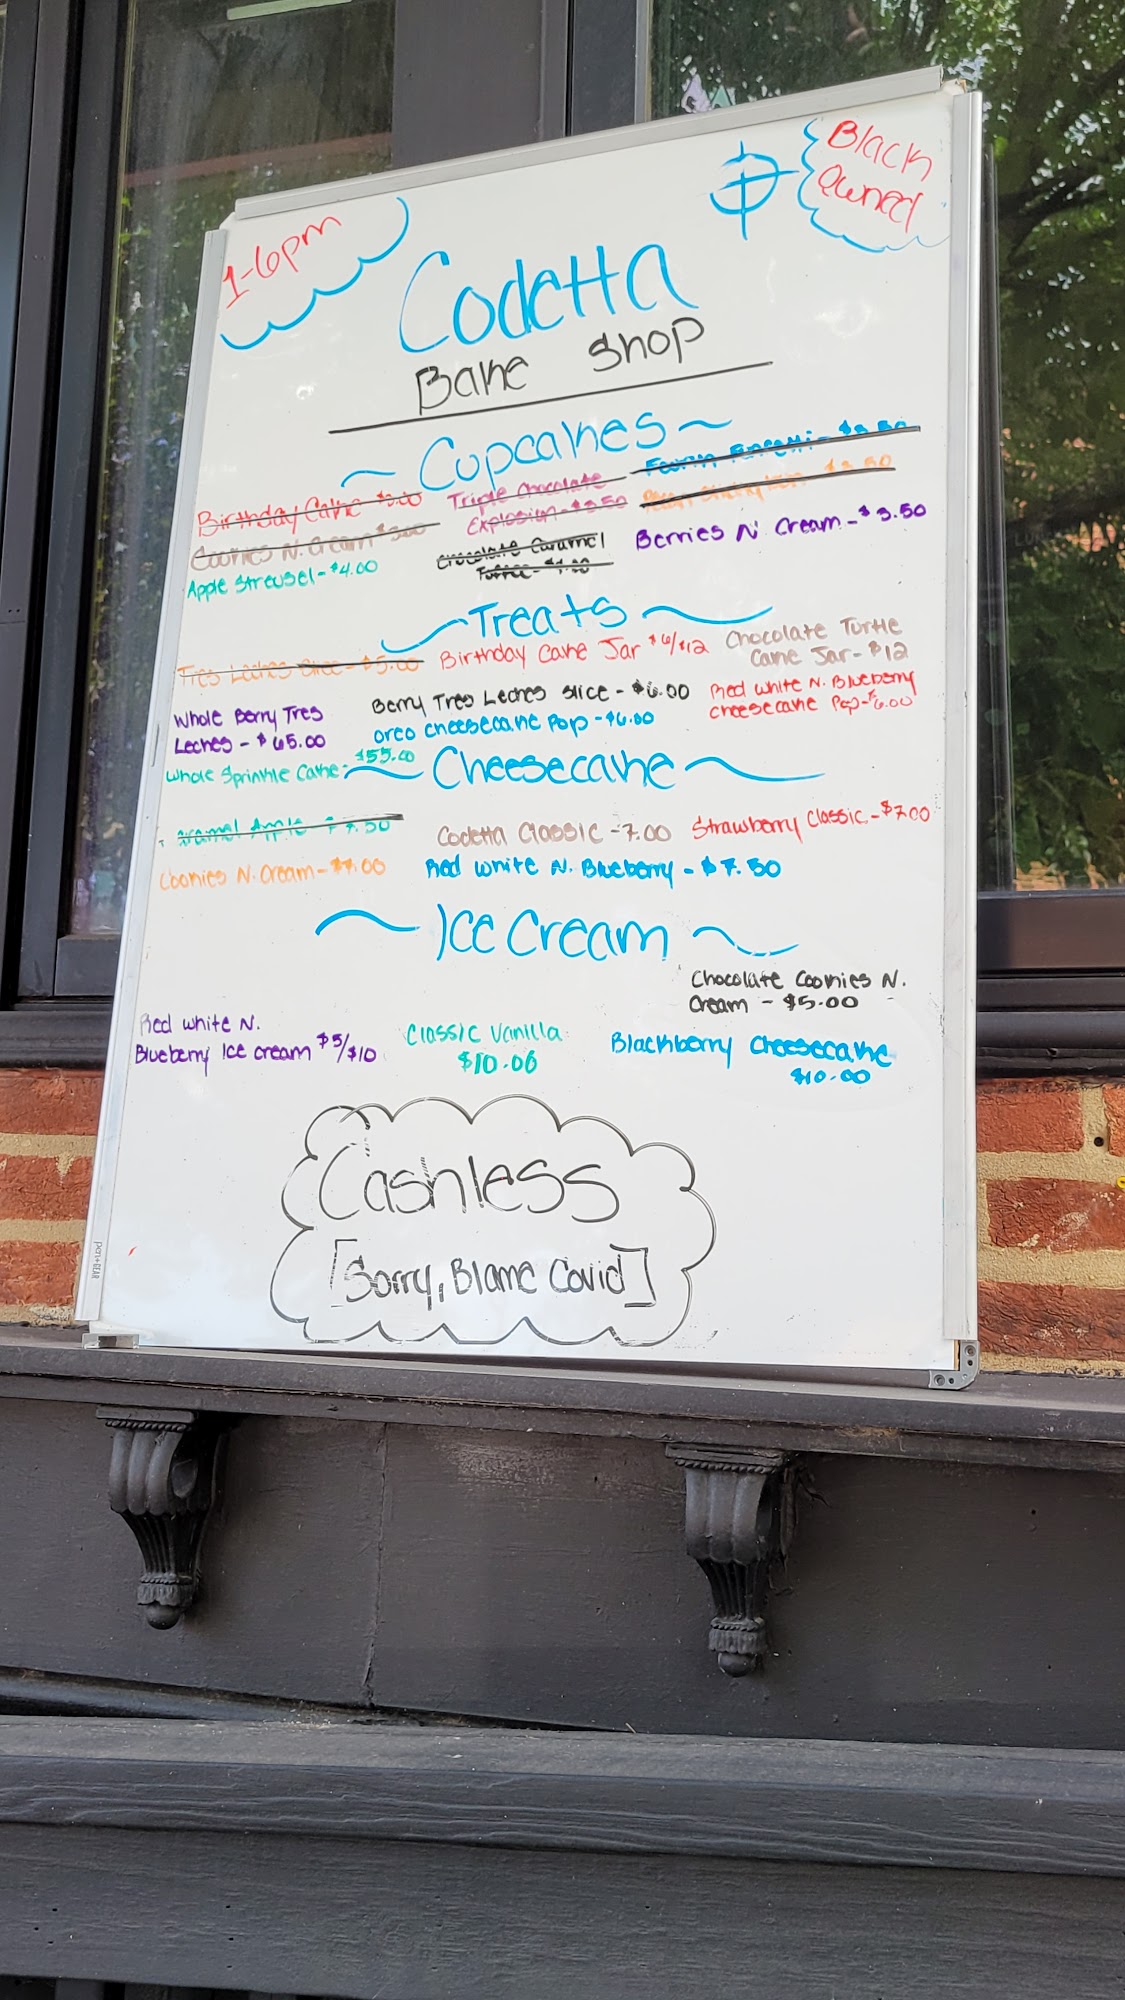 1-6pm
Black
Owned
Codetta
Bake Shop
~ Cupcakes ~
Birthday Cake $3.00
Triple Chocolate
Explosion - $3.50
- $3.50
- $3.50
Cookies N. Cream $3.00
Chocolate Caramel
Toffee - $4.00
Berries N Cream - $3.50
Apple Streusel - $4.00
Treats
Tres Leches Slice - $5.00
Birthday Cake Jar $6/$12
Chocolate Turtle
Cake Jar - $12
Whole Berry Tres
Leches - $65.00
Berry Tres Leches Slice - $6.00
Oreo Cheesecake Pop - $6.00
Red White N. Blueberry
Cheesecake Pop - $6.00
Whole Sprinkle Cake - $55.00
Cheesecake
Caramel Apple - $7.50
Codetta Classic - 7.00
Strawberry Classic - $7.00
Cookies N. Cream - $7.00
Red White N. Blueberry - $7.50
Ice Cream
Chocolate Cookies N.
Cream - $5.00
Red White N.
Blueberry Ice Cream $5/$10
Classic Vanilla
$10.00
Blackberry Cheesecake
$10.00
Cashless
[Sorry, Blame Covid]